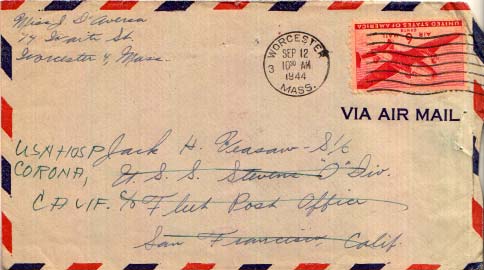 Miss J. D'Aversa
Worcester 4, Mass.
WORCESTER
SEP 12
10 30 AM
1944
MASS.
3
UNITED STATES OF AMERICA
AIR MAIL
6 CENTS
VIA AIR MAIL
USNHOSP
CORONA,
CALIF.
Jack H. Veasaw - S 1/c
U. S. S. Stevens "O" Div.
c/o Fleet Post Office
San Francisco, Calif.